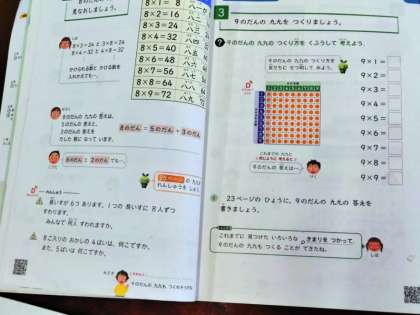 見なおしましょう。
8×1= 8
8×2=16
8×3=24
8×4=32
8×5=40
8×6=48
8×7=56
8×8=64
8×9=72
8×3=24と3×8=24
8×4=32と4×8=32
かけられる数と かける数を
入れかえても…
8のだんの 九九の 答えは、
5のだんの 答えと、
3のだんの 答えを
たした 数に なって います。
8のだん = 5のだん + 3のだん
れんしゅう
長いすが 6つ あります。1つの 長いすに 8人ずつ
すわります。
みんなで 何人 すわれますか。
8こ入りの おかしの 4はいは、何こですか。
また、5はいは 何こですか。
3
9のだんの 九九を つくりましょう。
9のだんの 九九の つくり方を くふうして 考えよう。
9のだんの 九九の つくり方を
9×1=
9×2=
9×3=
9×4=
9×5=
9×6=
9×7=
9×8=
9×9=
9のだんの 答えは…
23ページの ひょうに、9のだんの 九九の 答えを
書きましょう。
これまでに 見つけた いろいろな きまりを つかって、
9のだんの 九九も つくる ことが できたね。